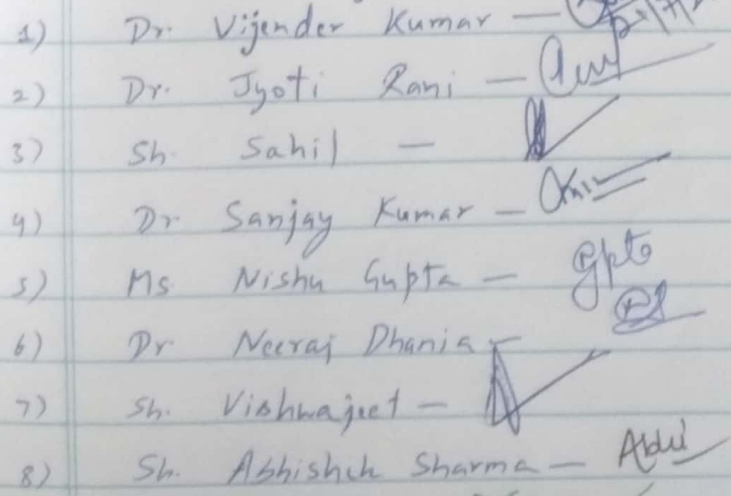 1) Dr. Vijender Kumar —
2) Dr. Jyoti Rani —
3) Sh. Sahil —
4) Dr. Sanjay Kumar —
5) Ms. Nishu Gupta — Gpta
6) Dr. Neeraj Dhania -
7) Sh. Vishwajeet —
8) Sh. Abhishek Sharma —